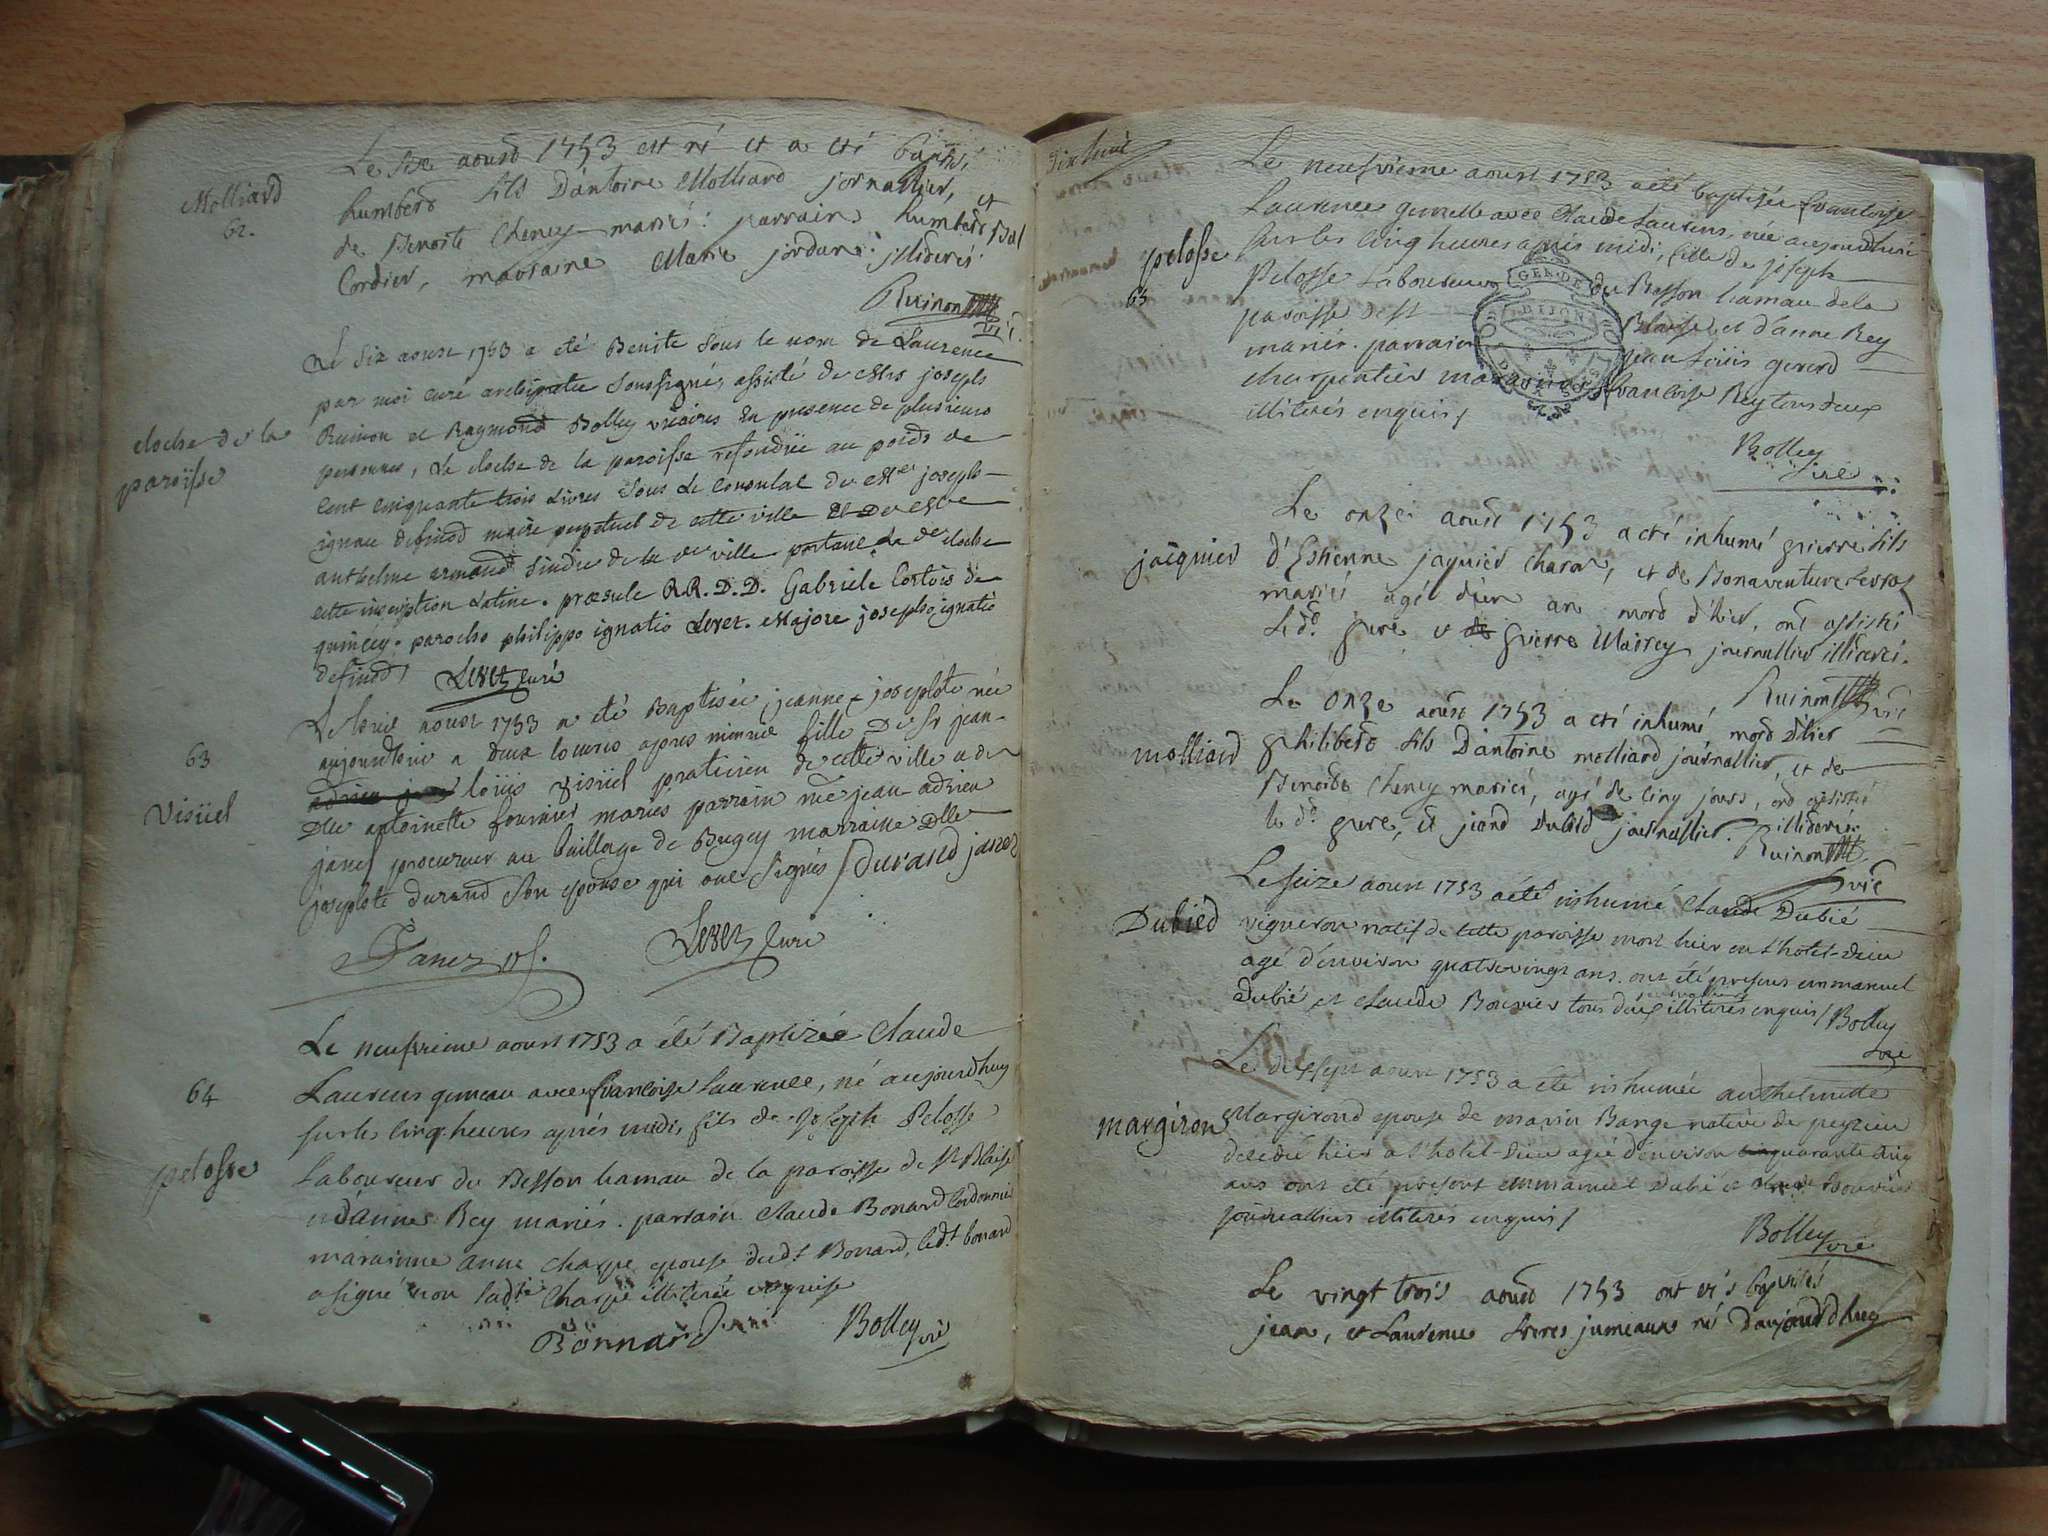 Molliard
62.
Le six aoust 1753 est né et a été baptisé
humbert fils d'antoine Molliard jornallier, et
de Benoite Cheney mariés: parrain humbert Bal
Cordier, maraine Marie jordane: illiterés.
Ruinon
vic.
cloche de la
paroisse
Le Six aoust 1753 a été Benite sous le nom de Laurence
par moi curé archipretre soussigné, assisté de Mrs joseph
Ruinon et Raymond Bolley vicaires en presence de plusieurs
personnes, La cloche de la paroisse refondüe au poids de
cent cinquante trois Livres sous Le consulat de Me joseph
ignace definod maire perpetuel de cette ville et de Me
anthelme armand sindic de la de ville portant La de cloche
cette inscription Latine. præsule RR. D. D. Gabriele Cortois de
quinçey. parocho philippo ignatio Levet. Majore josepho ignatio
definod / Levet curé
63
Visüel
Le huit aoust 1753 a été Baptisée jeanne josephte née
aujourdhuie a deux heures apres minuit fille De Sr jean
louis visüel praticien de cette ville et de
Dlle antoinette fournier mariés parrain Me jean adrien
janet procureur au baillage de Bugey marraine Dlle
josephte durand son epouse qui ont signés / durand janet
Janet
Levet curé
64
pelosse
Le neufvieme aoust 1753 a été Baptizée Claude
Laurens gumeau avec françoise Laurence, né aujourdhuy
sur les cinq heures aprés midi, fils de Joseph Pelosse
Laboureur du Besson hameau de la paroisse de St Blaise
et d'anne Rey mariés. parrain Claude Bonard Cordonnier
maraine anne charpe epouse dudt Bonard, ledt bonard
a signé non ladte Charpe illiterée enquise
Bonnard
Bolley vic
Dix huit
pelosse
65
Le neufvieme aoust 1753 a été baptisée françoise
Laurence gumelle avec Claude Laurens, née aujourdhui
sur les cinq heures apris midi, fille de joseph
Pelosse Laboureur du Besson hameau de la
paroisse de St Blaise et d'anne Rey
mariés. parrain jean Loüis gererd
charpentier maraine françoise Rey tous deux
illiterés enquis /
GEN. DE
DIJON
Bolley
vic
jacquier
Le onze aoust 1753 a été inhumé pierre fils
d'Estienne jaquier charon, et de Bonaventure
mariés agé d'un an mord d'hier, ont assisté
Le d. pere et pierre Mairey journallier illiterés.
Ruinon
vic
molliard
Le onze aoust 1753 a été inhumé, mord d'hier
philibert fils D'antoine molliard journallier, et de
Benoite Cheney mariés, agé de cinq jours, ont assisté
le d. pere, et journallier. illiterés.
Ruinon
vic
Dubied
Le seize aoust 1753 a été inhumé Claude Dubié
vigneron natif de cette paroisse mort hier en l'hotel-dieu
agé d'environ quatrevingt ans. ont été presens emmanuel
dubié et claude Bouvier tous deux journalliers illiterés enquis / Bolley
vic
margiron
Le dixsept aoust 1753 a été inhumée anthelmette
Margirond epouse de marin Bange native de peyzieu
decedée hier a l'hotel-dieu agée d'environ quarante cinq
ans ont été presens emmanuel dubié et claude Bouvier
journalliers illiterés enquis /
Bolley
vic
Le vingt trois aoust 1753 ont etés baptisés
jean, et Laurence freres jumeaux né d'aujourdhuy